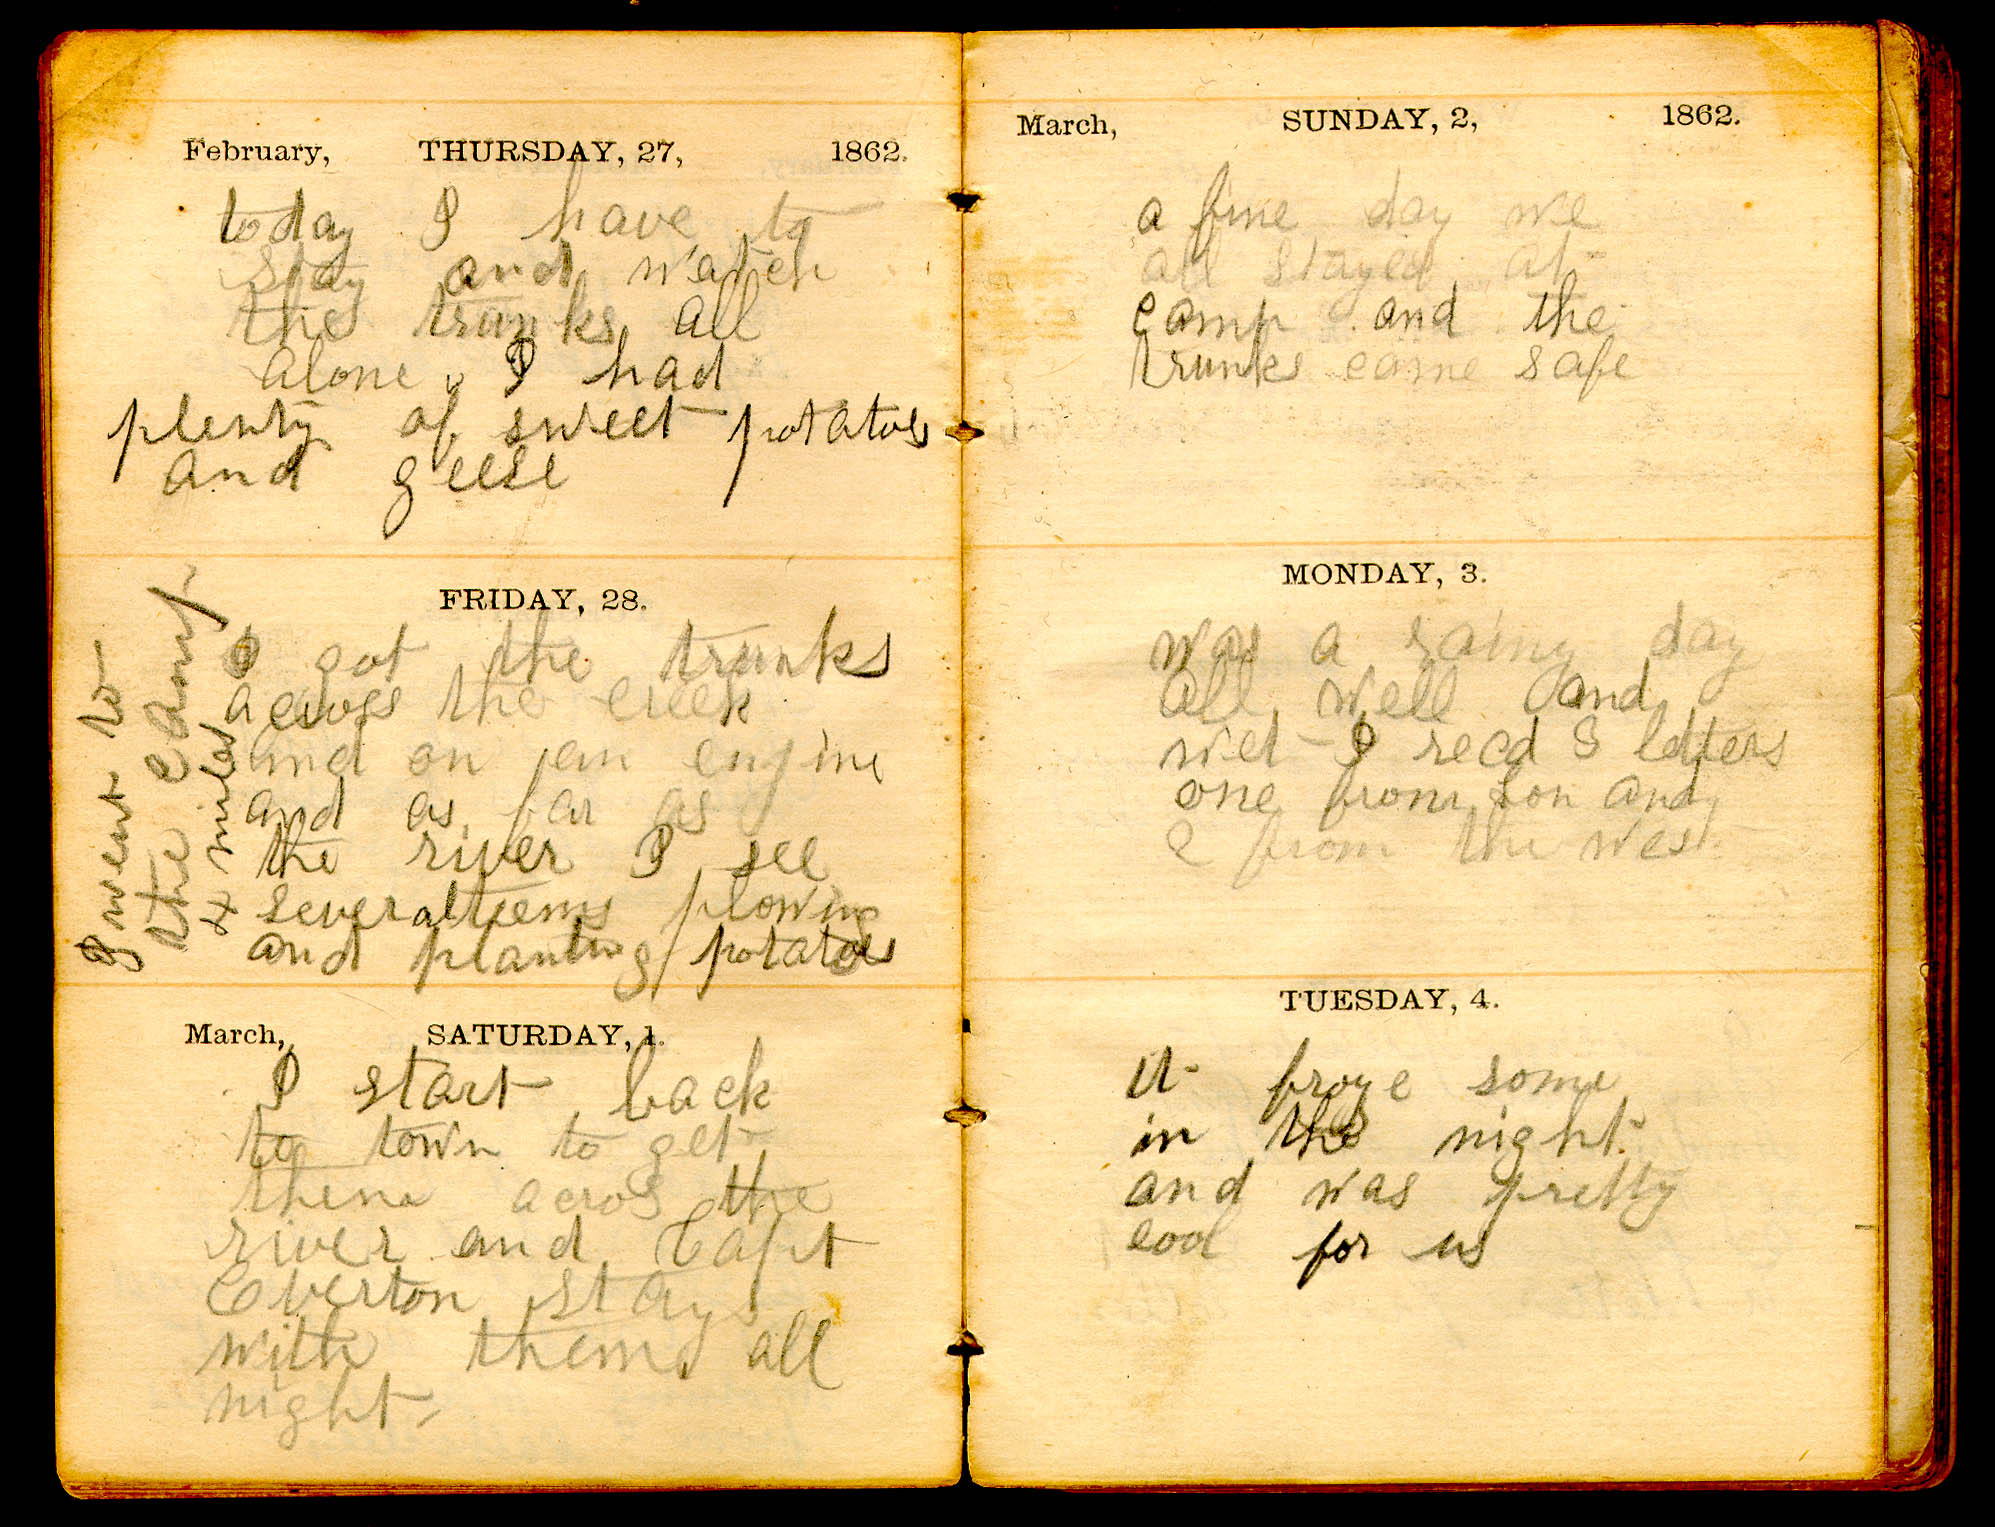 February, THURSDAY, 27, 1862.
today I have to
stay and watch
the trunks all
alone I had
plenty of sweet potatoes
and geese
FRIDAY, 28.
I got the trunks
across the creek
and on an engine
and as far as
the river I see
several teems plowing
and planting potatoes
I went to
the camp
4 miles
March, SATURDAY, 1.
I start back
to town to get
them acros the
river and Capt
Everton stays
with them all
night
March, SUNDAY, 2, 1862.
a fine day we
all stayed at
camp and the
trunks came safe
MONDAY, 3.
was a rainy day
all well and
wet I recd 3 letters
one from and
2 from the west
TUESDAY, 4.
it froze some
in the night
and was pretty
cool for us